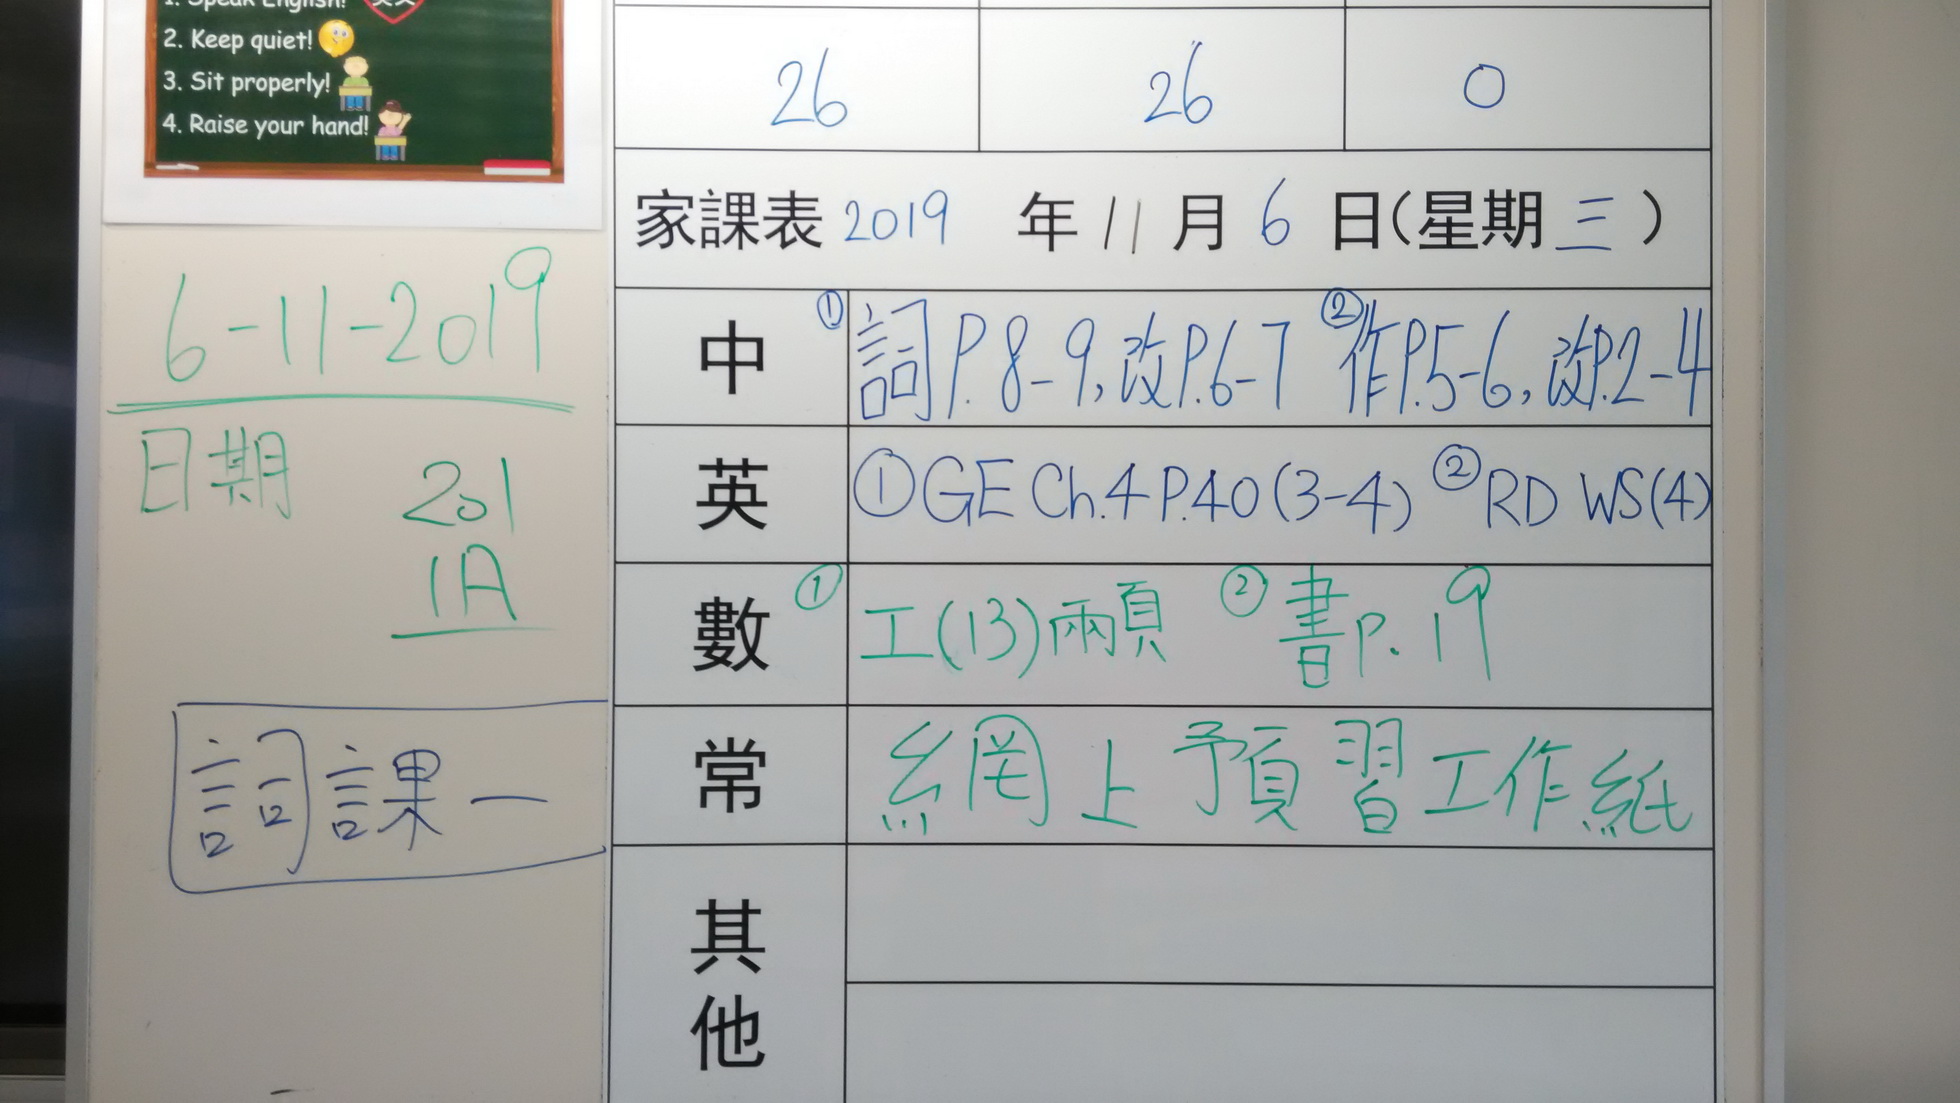 1. Speak English!
2. Keep quiet!
3. Sit properly!
4. Raise your hand!
6-11-2019
日期
201
1A
詞課一
26 26 0
家課表 2019 年 11 月 6 日(星期三)
中 ①詞P.8-9,改P.6-7 ②作P.5-6,改P.2-4
英 ①GE Ch.4 P.40(3-4) ②RD WS(4)
數 ①工(13)兩頁 ②書P.19
常 網上預習工作紙
其他